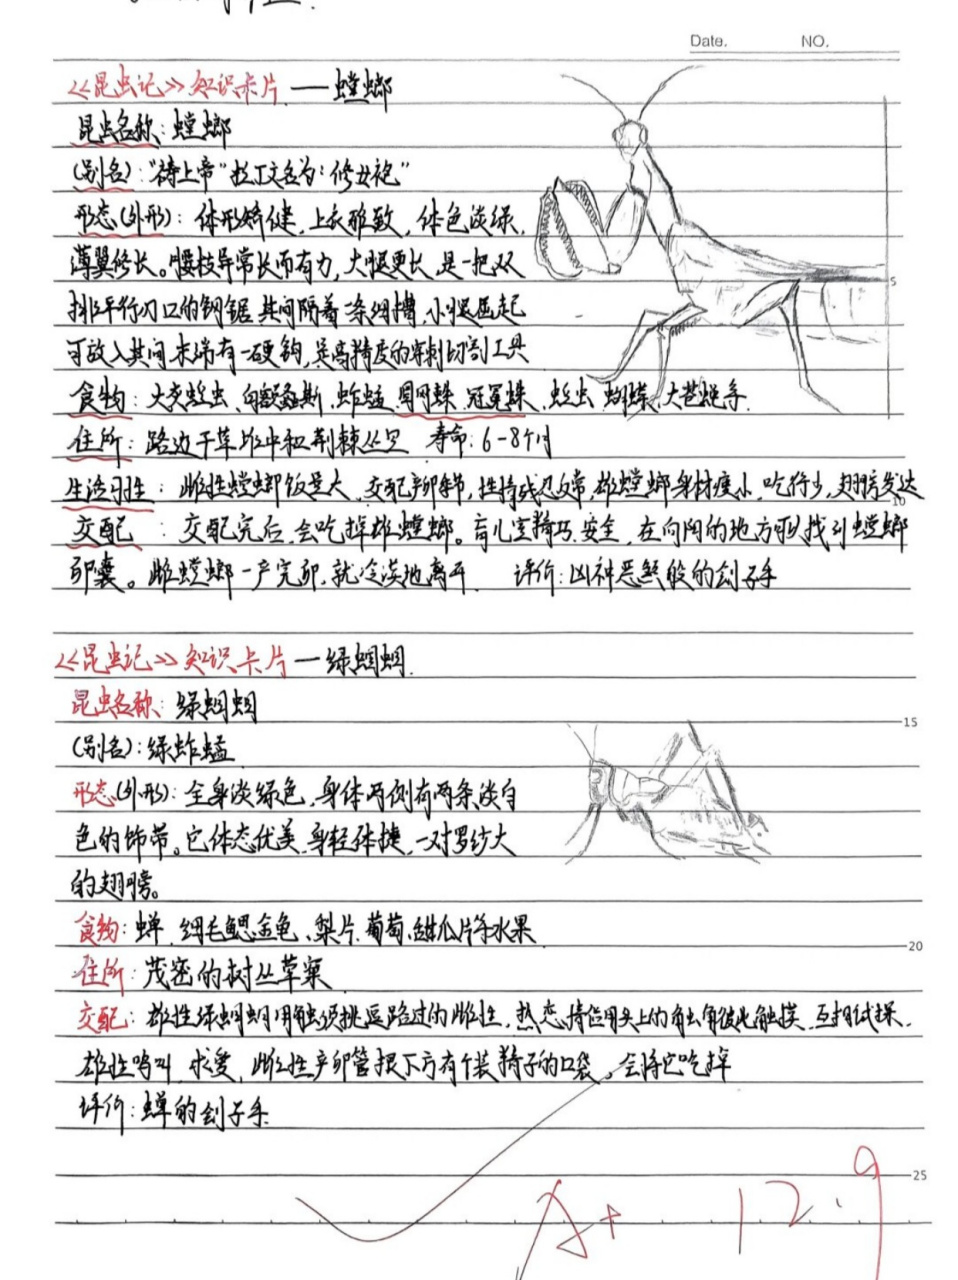 Date. NO.
《昆虫记》知识卡片 —— 螳螂
昆虫名称：螳螂
(别名)："祷上帝" 拉丁文名为："修女袍"
形态(外形)：体形矫健，上衣雅致，体色淡绿，
薄翼修长。腰肢异常长而有力，大腿更长，是一把双
排平行刀口的钢锯，其间隔着一条细槽，小腿屈起
可放入其间，末端有一硬钩，是高精度的穿刺切割工具
食物：大灰蝗虫、白额螽斯、蚱蜢、圆网蛛、冠冕蛛、蝗虫、蝴蝶、大苍蝇等
5
住所：路边干草堆中和荆棘丛里 寿命：6-8个月
生活习性：雌性螳螂饭量大，交配产卵季节，性情或反常，雄螳螂身材瘦小，吃得少，翅膀发达
10
交配：交配完后，会吃掉雄螳螂。育儿室精巧、安全，在向阳的地方可以找到螳螂
卵囊。雌螳螂一产完卵，就冷漠地离开 评价：凶神恶煞般的刽子手
《昆虫记》知识卡片 — 绿蝈蝈
昆虫名称：绿蝈蝈
15
(别名)：绿蚱蜢
形态(外形)：全身淡绿色，身体两侧有两条淡白
色的饰带。它体态优美，身轻体捷，一对罗纱大
的翅膀。
食物：蝉、细毛鳃金龟、梨片、葡萄、甜瓜片等水果
20
住所：茂密的树丛草窠
交配：雄性绿蝈蝈用触须挑逗路过的雌性，热恋情侣用头上的触角彼此触摸，互相试探，
雄性鸣叫，求爱，雌性产卵管根下方有个装精子的口袋，会将它吃掉
评价：蝉的刽子手
25
A+ 12.9